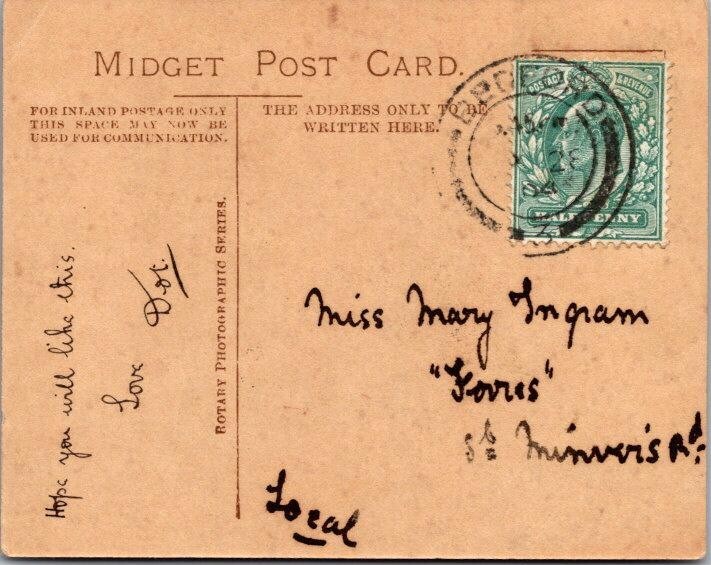 MIDGET POST CARD.
FOR INLAND POSTAGE ONLY
THIS SPACE MAY NOW BE
USED FOR COMMUNICATION.
THE ADDRESS ONLY TO BE
WRITTEN HERE.
POSTAGE & REVENUE
HALFPENNY
04
3
ROTARY PHOTOGRAPHIC SERIES.
Hope you will like this.
Love
Dot.
Miss Mary Ingram
"Forres"
St Minver's Rd.
Local